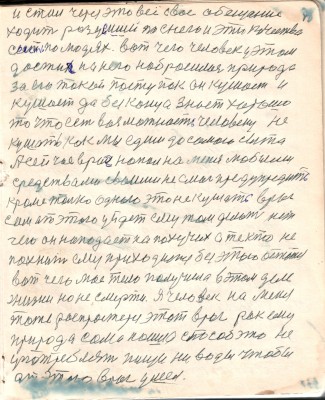 и стал через это всё своё обещание
ходит разутый по снегу и эти качества
по людях вот чего человек у этом
достиг на него набросилася природа
за его такой поступок он кушает и
кушает да без конца знает хорошо
то что есть возможность человеку не
кушать как мы едим до самого сыта
А сейчас враг напал на меня любыми
средствами своими не смог предупредить
кроме только одного это не кушать враг
сам от этого уйдет ему там делать нет
чего он нападает на пахучих а те кто не
пахнит ему приходится без этого
вот чего мое тело получила в этом деле
жизни но не смерти. А человек на меня
тоже распростёр этот враг рак ему
природа сама нашла способ это не
употреблять пищи ни воды чтобы
от этого враг ушел.